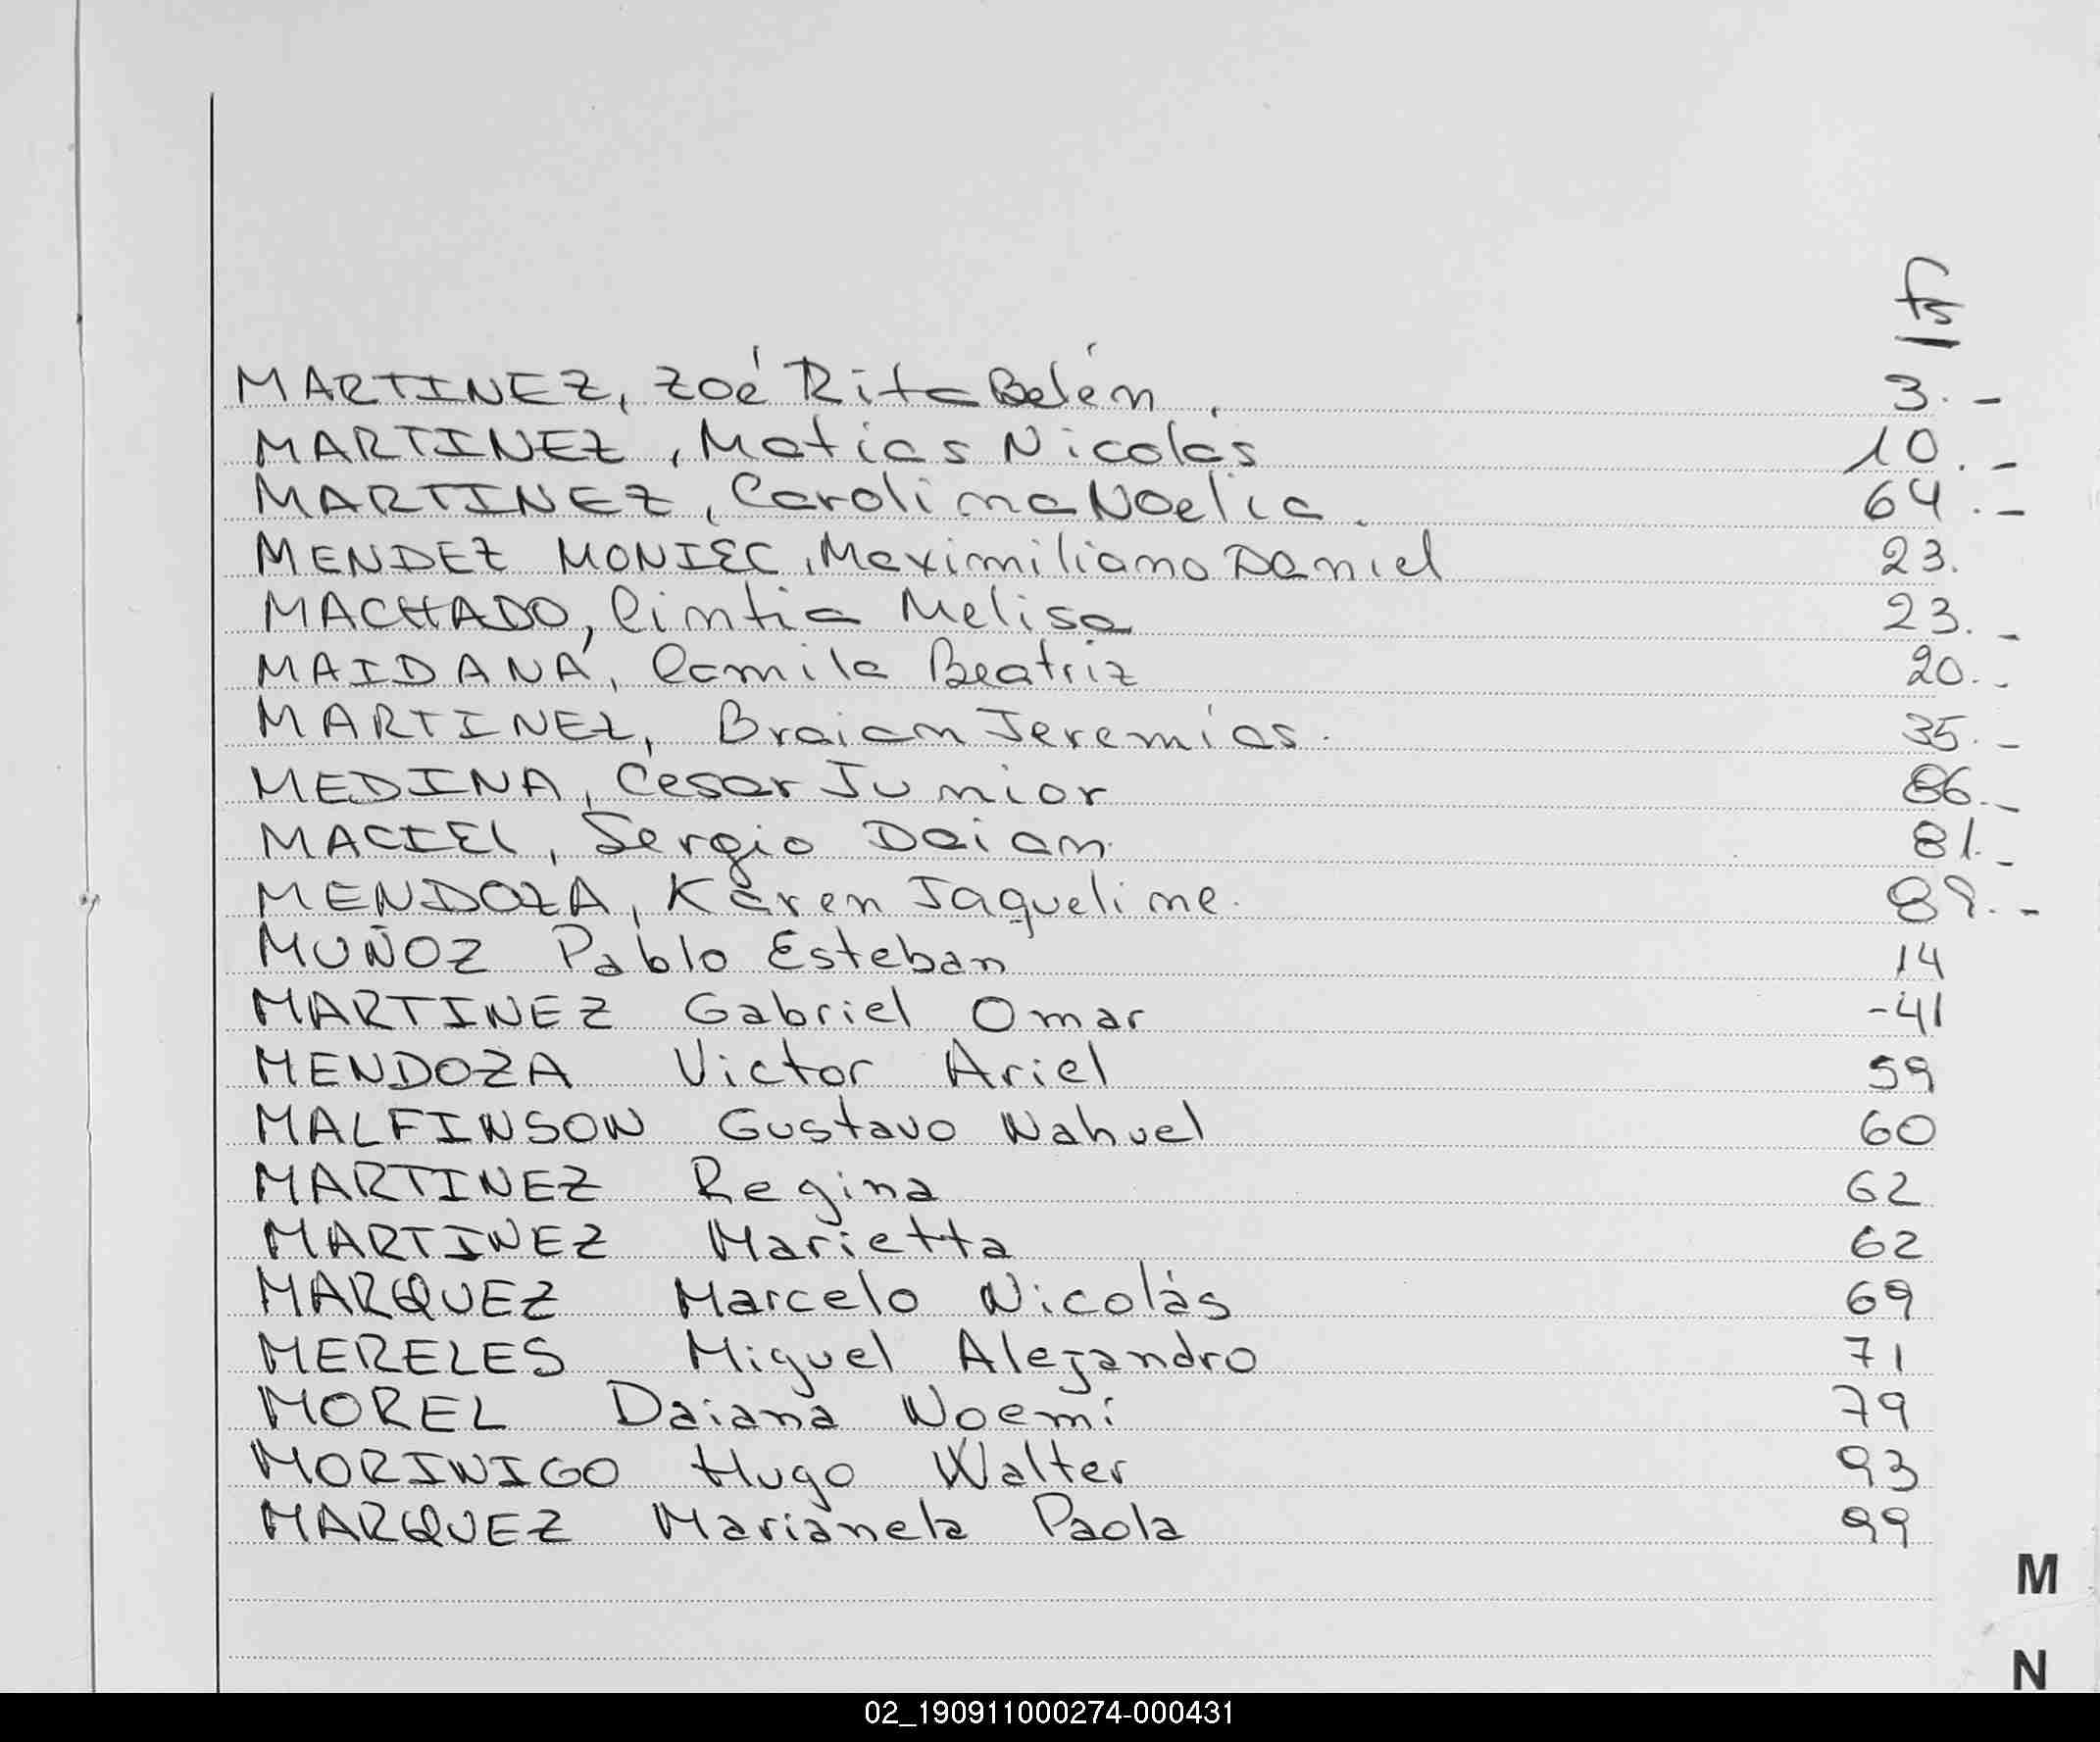 fs
MARTINEZ, Zoé Rita Belén. 3.-
MARTINEZ, Matias Nicolás 10.-
MARTINEZ, Carolina Noelia. 64.-
MENDEZ MONIEC, Maximiliano Daniel 23.
MACHADO, Cintia Melisa 23.-
MAIDANA, Camila Beatriz 20.-
MARTINEZ, Braian Jeremías. 35.-
MEDINA, Cesar Junior 86.-
MACIEL, Sergio Daian. 81.-
MENDOZA, Karen Jaqueline. 89.-
MUÑOZ Pablo Esteban 14
MARTINEZ Gabriel Omar -41
MENDOZA Victor Ariel 59
MALFINSON Gustavo Nahuel 60
MARTINEZ Regina 62
MARTINEZ Marietta 62
MARQUEZ Marcelo Nicolás 69
MERELES Miguel Alejandro 71
MOREL Daiana Noemí 79
MORINIGO Hugo Walter 93
MARQUEZ Marianela Paola 99
M
N
02_190911000274-000431